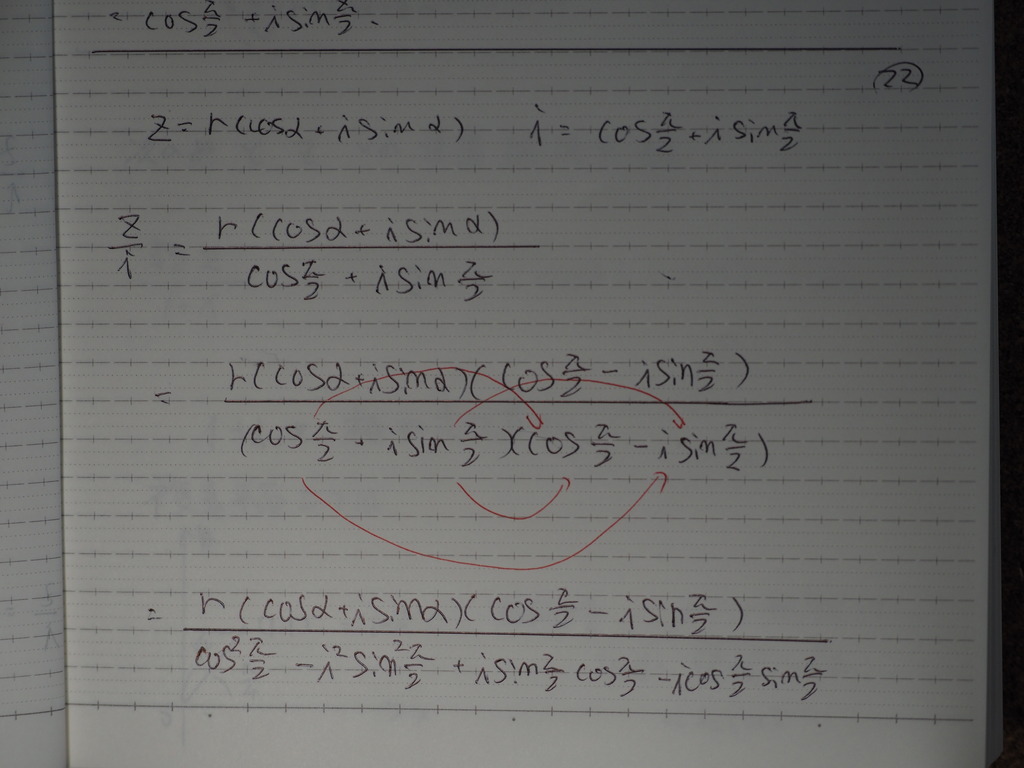 = cos π/2 + i sin π/2.
(22)
z = r(cosα + i sinα)   i = cos π/2 + i sin π/2
z/i = r(cosα + i sinα) / cos π/2 + i sin π/2
= r(cosα + i sinα)(cos π/2 − i sin π/2) / (cos π/2 + i sin π/2)(cos π/2 − i sin π/2)
= r(cosα + i sinα)(cos π/2 − i sin π/2) / cos² π/2 − i² sin² π/2 + i sin π/2 cos π/2 − i cos π/2 sin π/2